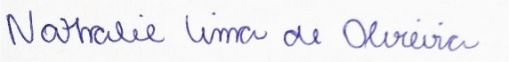 Nathalie Lima de Oliveira